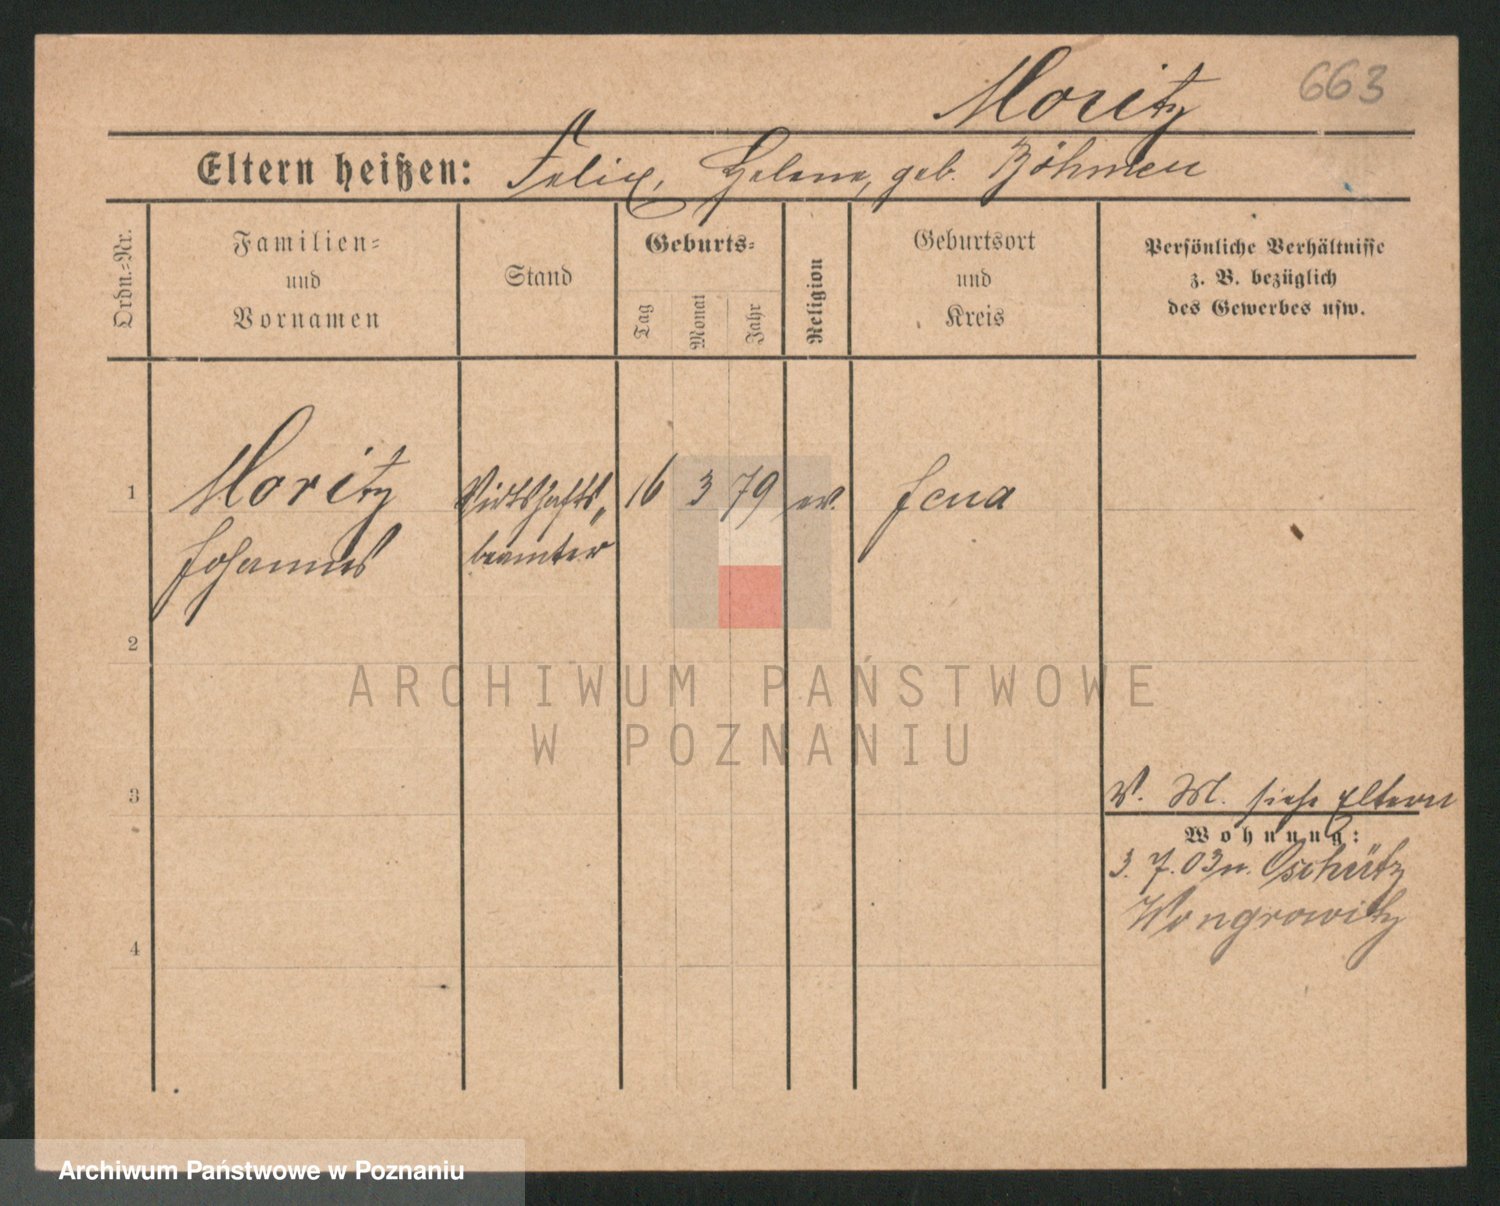 Moritz 663
Eltern heißen: Felix, Helene, geb. Böhmer
Ordn.=Nr.
Familien=
und
Vornamen
Stand
Geburts=
Tag
Monat
Jahr
Religion
Geburtsort
und
Kreis
Persönliche Verhältnisse
z. B. bezüglich
des Gewerbes usw.
1 Moritz Wirtshafts„ 16 3 79 ev. Jena
Johannes beamter
2
ARCHIWUM PAŃSTWOWE
W POZNANIU
3
V. M. siehe Eltern
Wohnung:
3. 7. 03 n.
Wongrowitz
4
Archiwum Państwowe w Poznaniu